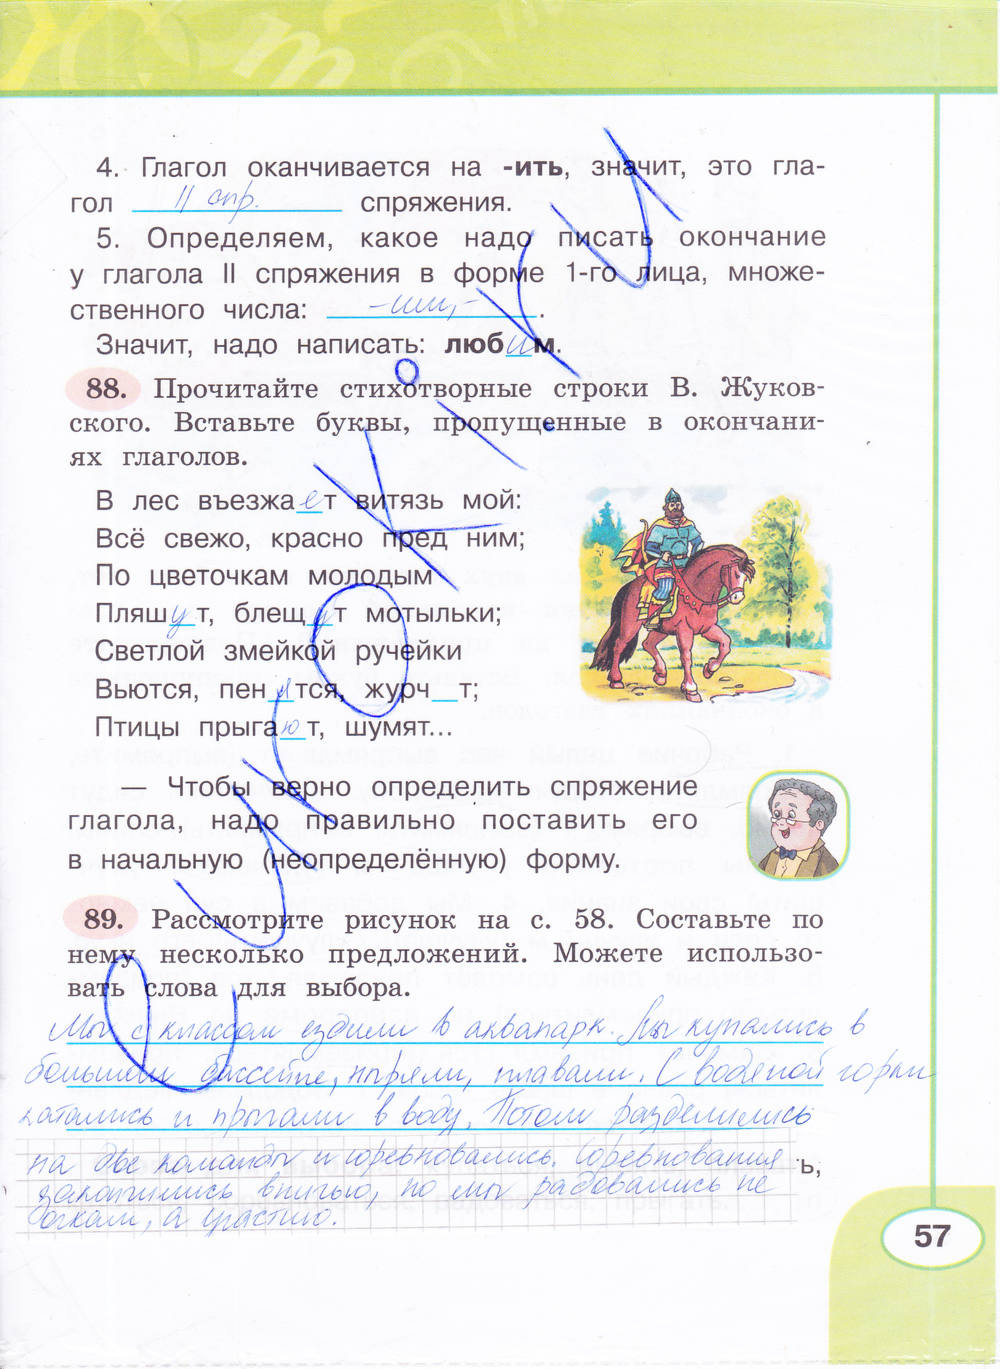 4. Глагол оканчивается на -ить, значит, это гла-
гол II спр. спряжения.
5. Определяем, какое надо писать окончание
у глагола II спряжения в форме 1-го лица, множе-
ственного числа: -им,-.
Значит, надо написать: любим.
88. Прочитайте стихотворные строки В. Жуков-
ского. Вставьте буквы, пропущенные в окончани-
ях глаголов.
В лес въезжает витязь мой:
Всё свежо, красно пред ним;
По цветочкам молодым
Пляшут, блещут мотыльки;
Светлой змейкой ручейки
Вьются, пенятся, журч_т;
Птицы прыгают, шумят...
— Чтобы верно определить спряжение
глагола, надо правильно поставить его
в начальную (неопределённую) форму.
89. Рассмотрите рисунок на с. 58. Составьте по
нему несколько предложений. Можете использо-
вать слова для выбора.
Мы с классом ездили в аквапарк. Мы купались в
большом бассейне, ныряли, плавали. С водяной горки
катались и прыгали в воду. Потом разделились
на две команды и соревновались. Соревнования
ь,
закончились вничью, но мы радовались не
очкам, а участию.
57